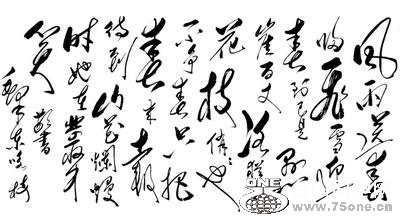 风雨送春
归飞雪迎
春到已是悬
崖百丈冰犹有
花枝俏俏也
不争春只把
春来报
待到山花烂熳
时她在丛中
笑
毛泽东咏梅
ONE
www.75one.cn